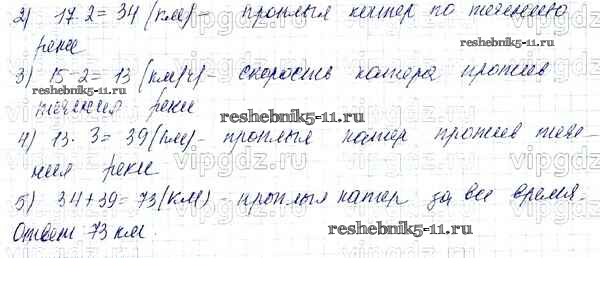 2) 17·2=34 (км)- проплыл катер по течению
реки
3) 15-2=13 (км/ч)- скорость катера против
течения реки
reshebnik5-11.ru
reshebnik5-11.ru
4) 13·3=39 (км)- проплыл катер против тече-
ния реки
5) 34+39=73(км) - проплыл катер за все время.
Ответ 73 км.
reshebnik5-11.ru
vipgdz.ru